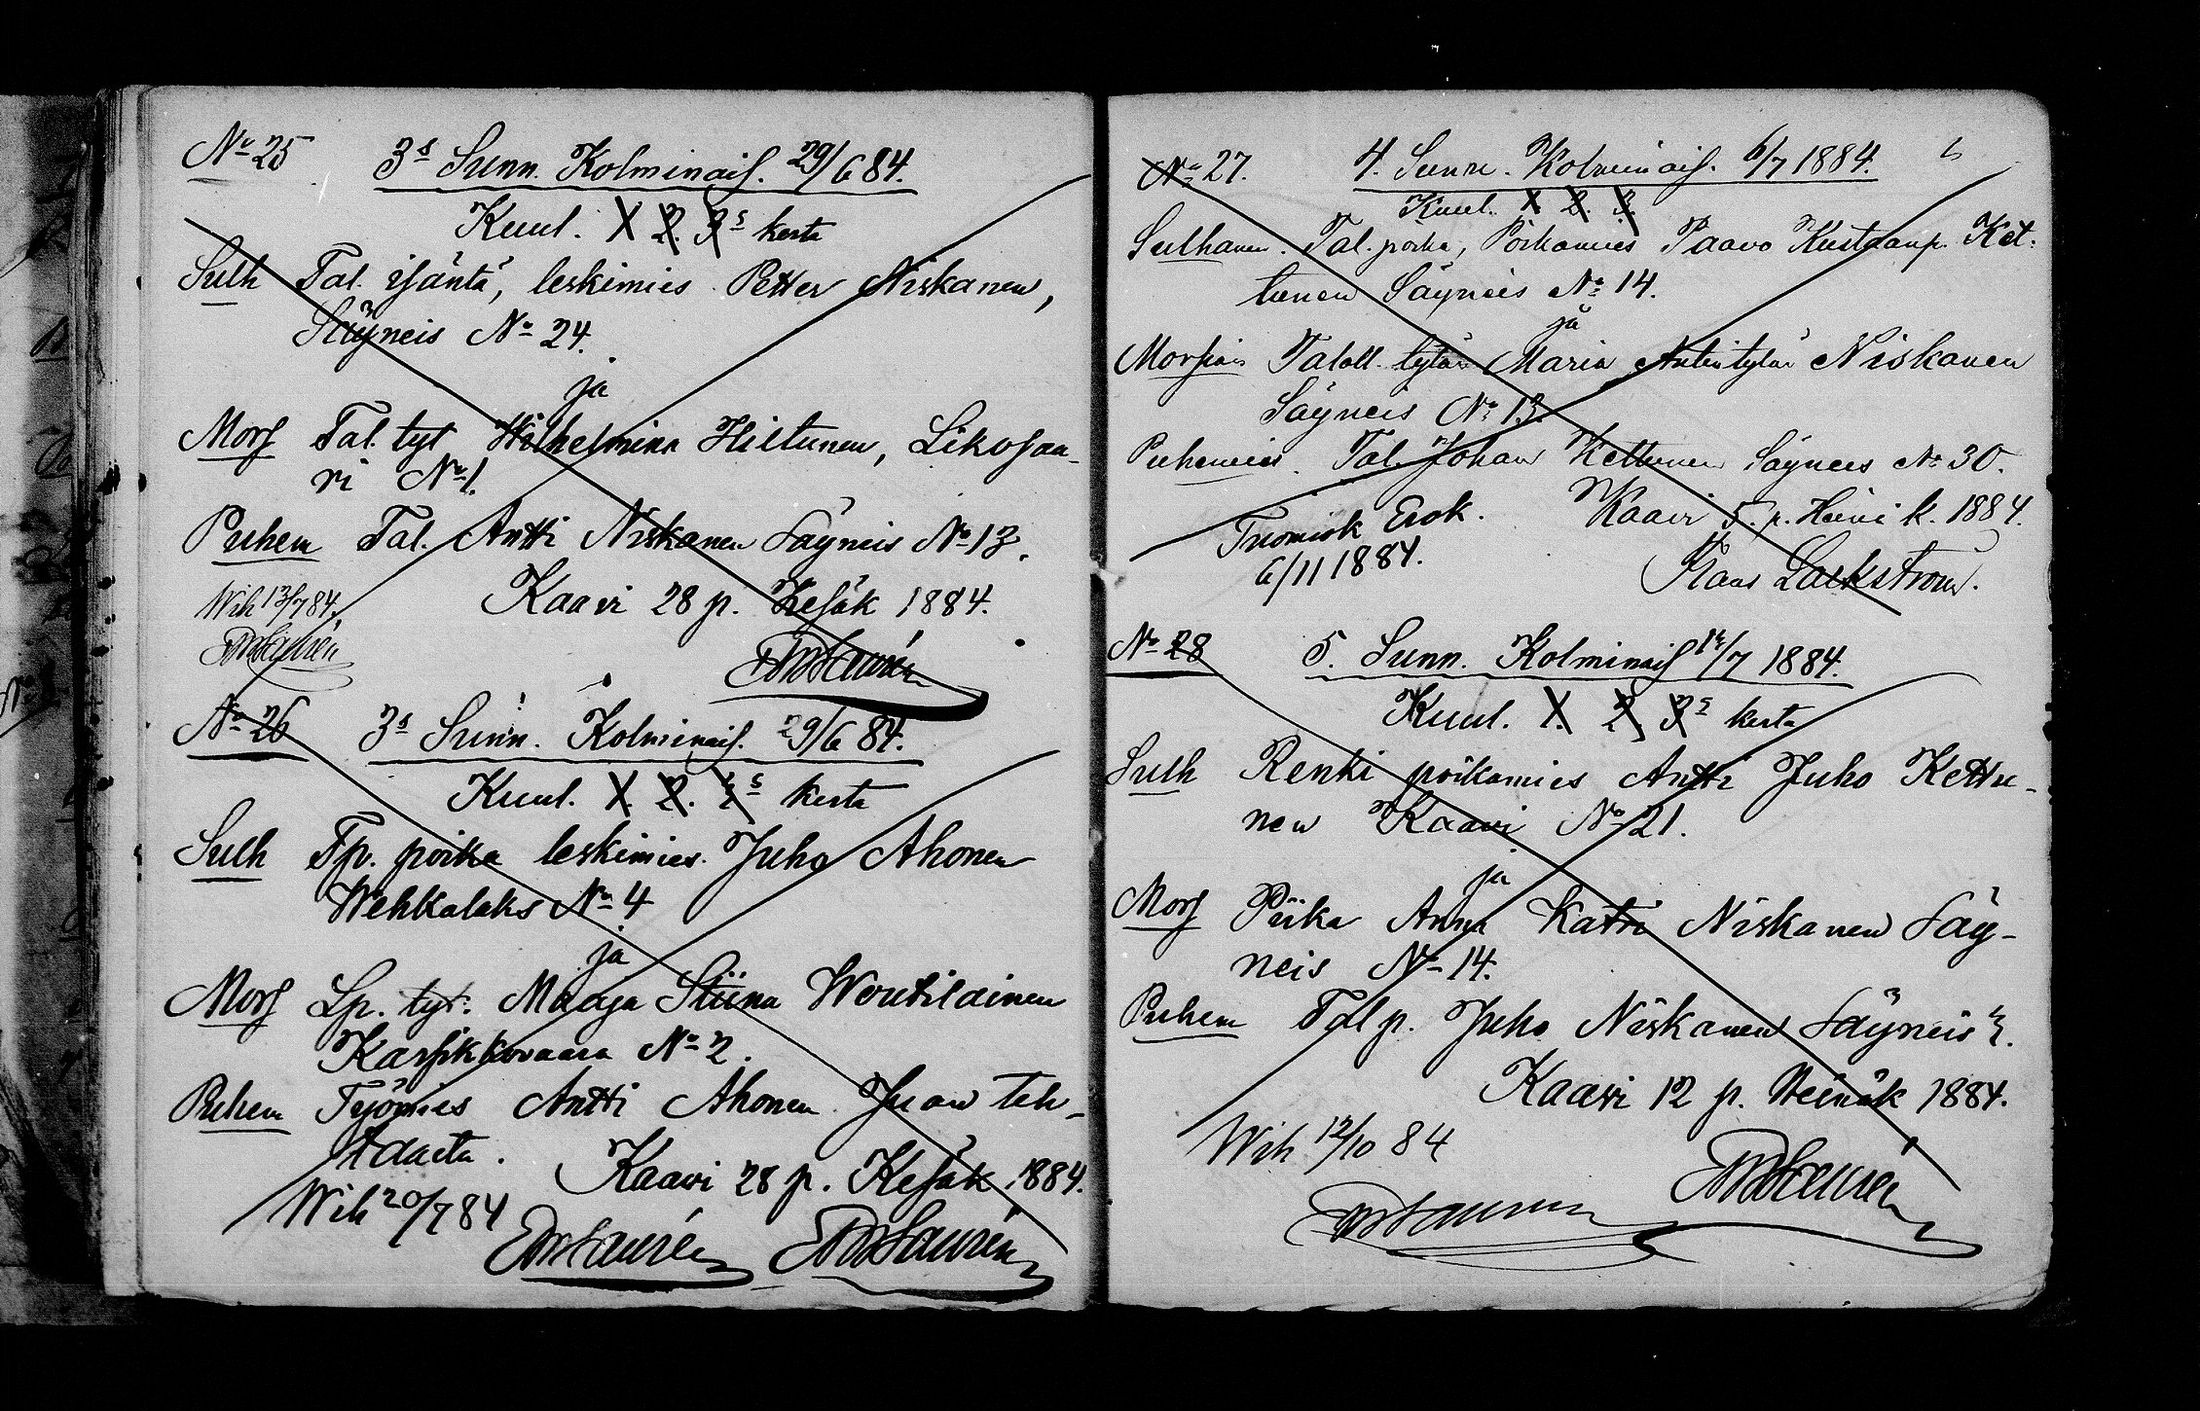 No 25 3s Sunn. Kolminais. 29/6 84.
Kuul. 1 2. 3s kerta
Sulh Tal. isäntä, leskimies Petter Niskanen,
Säyneis No 24.
ja
Mors Tal. tyt Wilhelmina Hiltunen, Likosaa-
ri No 1.
Puhem Tal. Antti Niskanen Säyneis No 13.
Kaavi 28 p. Kesäk 1884.
Wih 13/7 84.
No 26 3s Sunn. Kolminais. 29/6 84.
Kuul. 1. 2. 3s kerta
Sulh Tp. poika leskimies. Juho Ahonen
Wehkalaks No 4
ja
Mors Lp. tyt: Maaja Stiina Woutilainen
Karsikkovaara No 2.
Puhem Työmies Antti Ahonen Juan teh-
tdaeta.
Kaavi 28 p. Kesäk 1884.
Wih 20/7 84
No 27. 4. Sunn. Kolminais. 6/7 1884.
Kuul. 1. 2. 3.
Sulhanen. Tal. poika, Poikamies Paavo Kustaanp. Ket:
tunen Säyneis No 14.
ja
Morsian Taloll. tytär Maria Antintytär Niskanen
Säyneis No 13.
Puhemies. Tal. Johan Kettunen Säyneis No 30.
Kaavi 5. p. Heinäk. 1884.
Tuomiok Erok.
6/11 1884.
Lackström.
No 28 5. Sunn. Kolminais 13/7 1884.
Kuul. 1. 2. 3s kerta
Sulh Renki poikamies Antti Juho Kettu-
nen Kaavi No 21.
ja
Mors Piika Anna Katri Niskanen Säy-
neis No 14.
Puhem Tal p. Juho Niskanen Säyneis
Kaavi 12 p. Heinäk 1884.
Wih 12/10 84